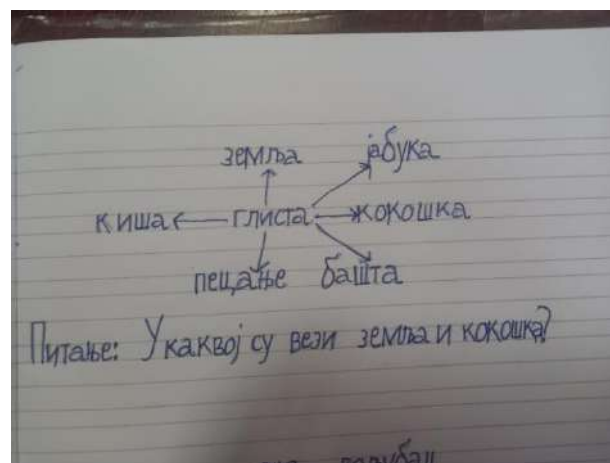 земља јабука
киша глиста кокошка
пецање башта
Питање: У каквој су вези земља и кокошка?